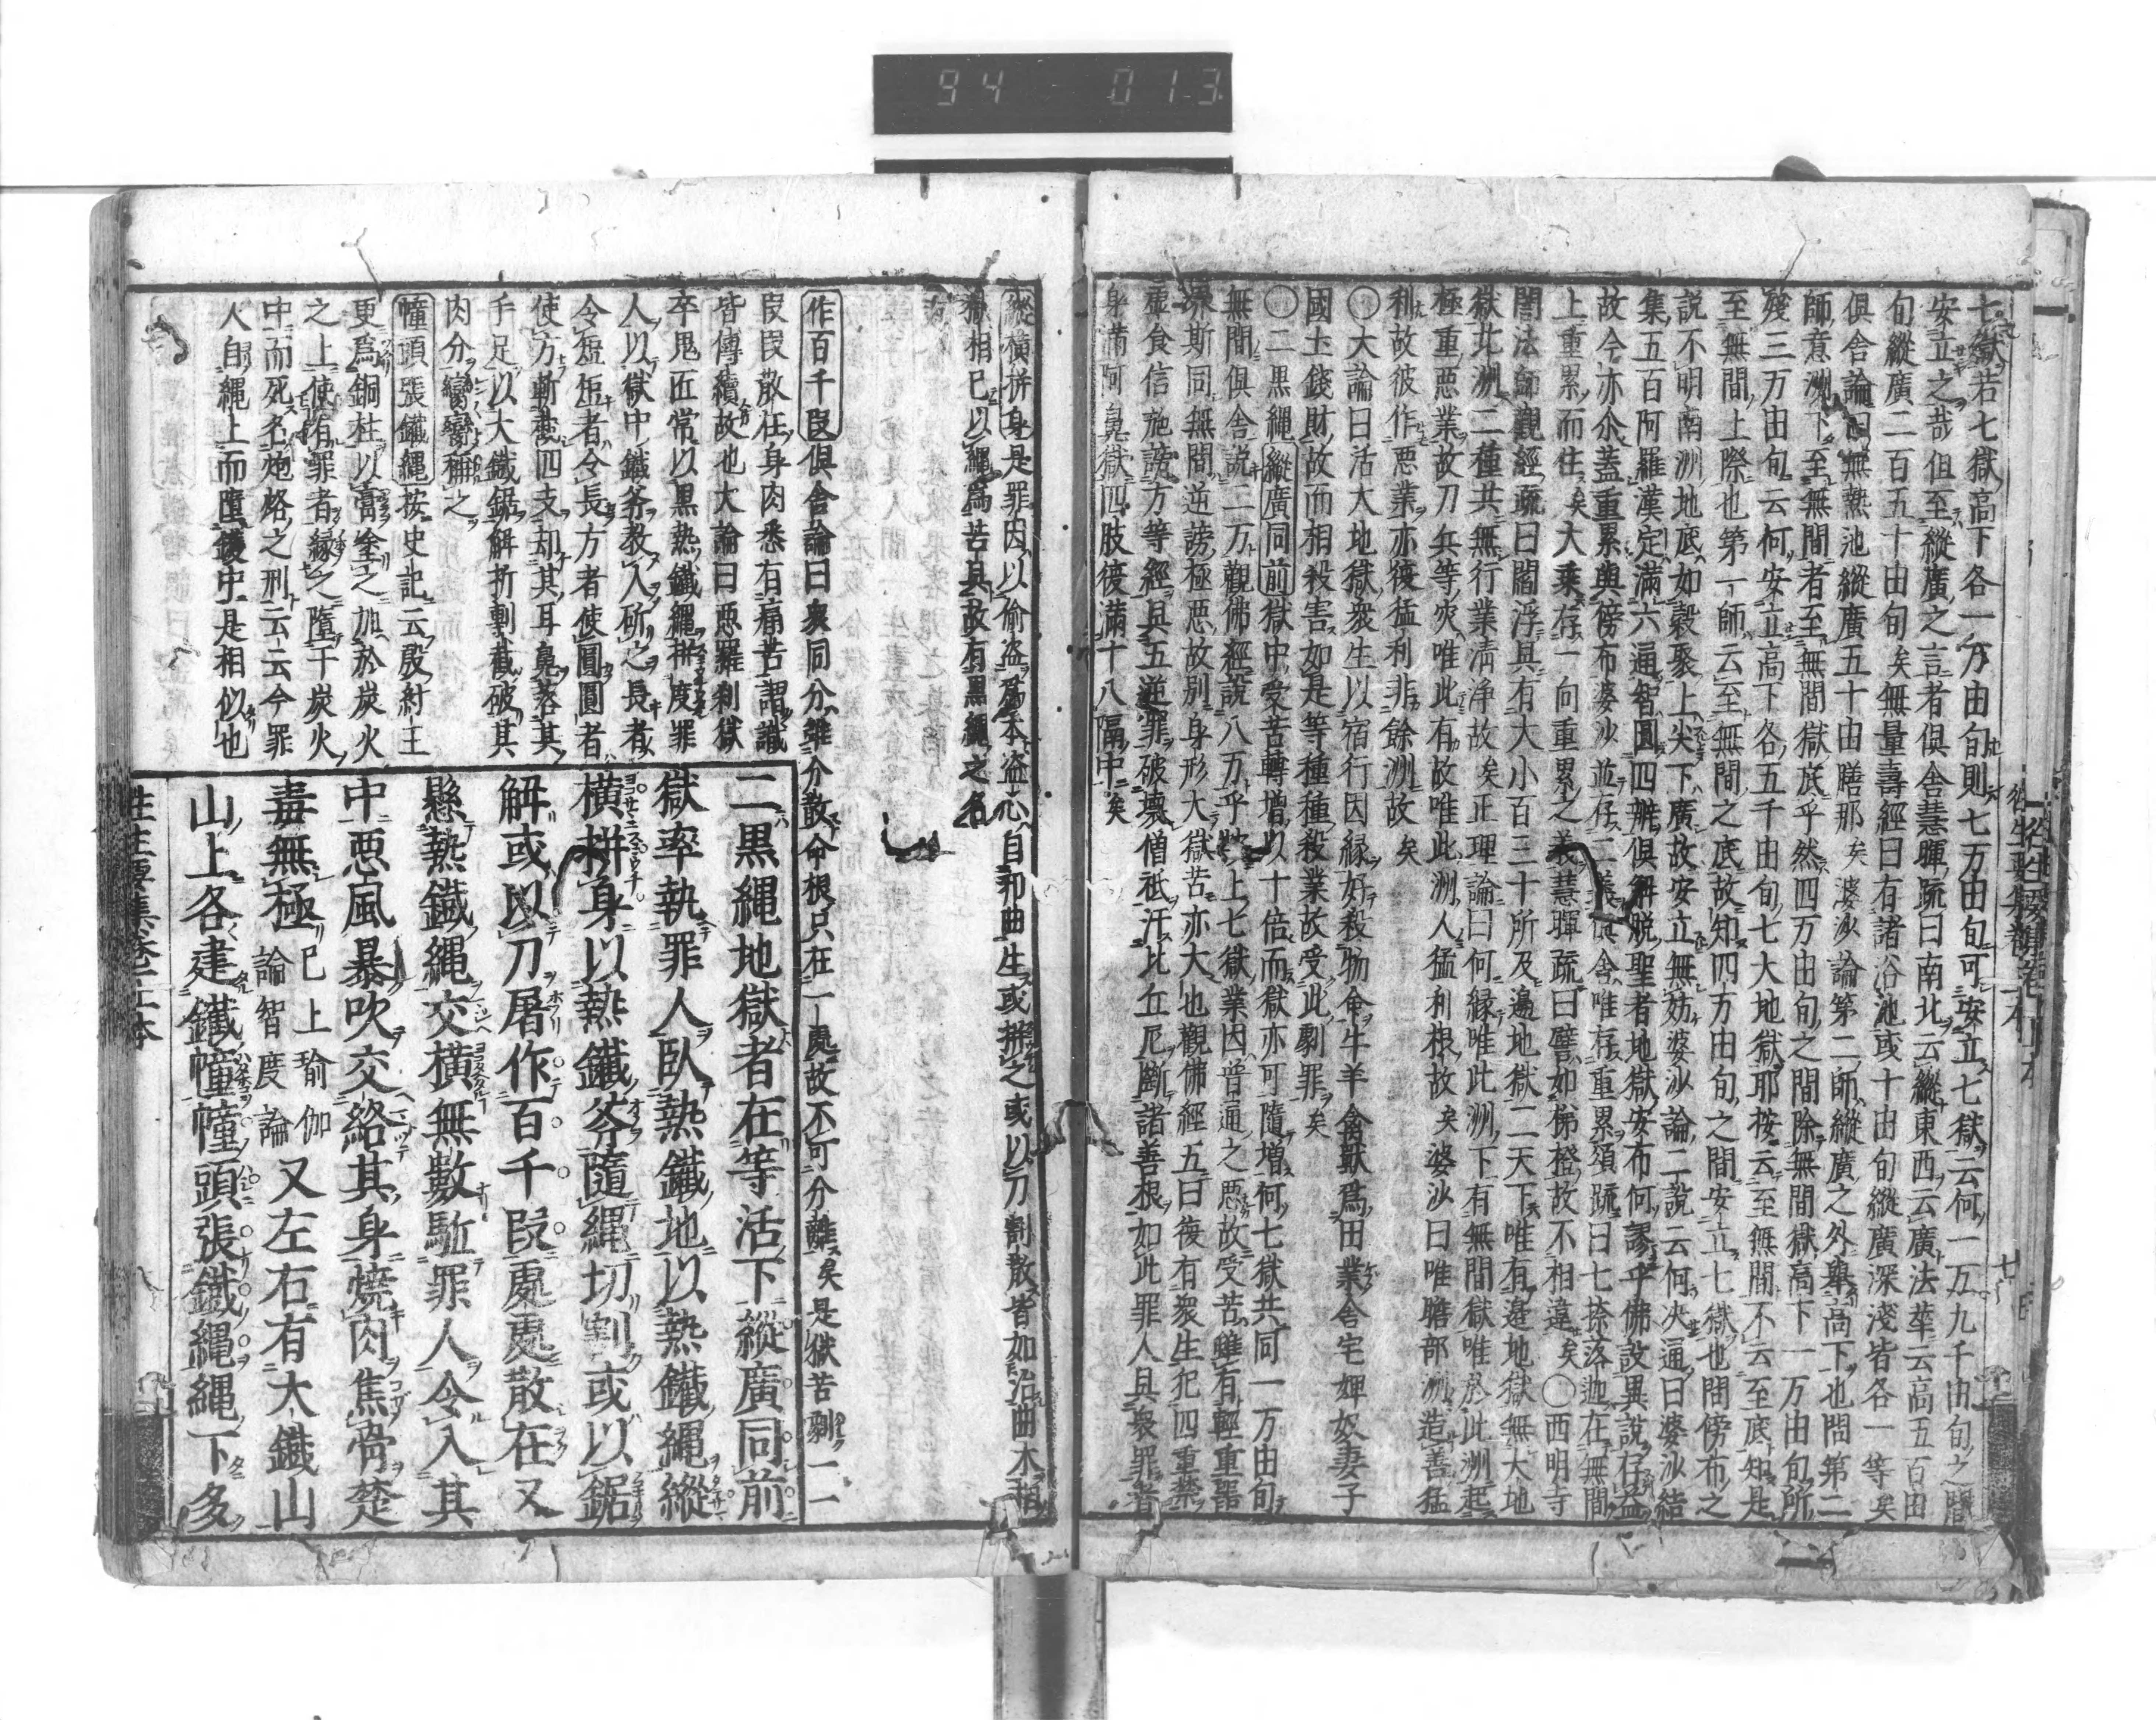 94 013
七獄若七獄高下各一万由旬則七万由旬可安立七獄云何一万九千由旬之間
安立之哉但至縱廣之言者俱舍慧暉疏曰南北云縱東西云廣法華云高五百由
旬縱廣二百五十由旬矣無量壽經曰有諸浴池或十由旬縱廣深淺皆各一等矣
俱舍論曰無熱池縱廣五十由膳那矣婆沙論第二師縱廣之外舉高下也問第二
師意洲下至無間者至無間獄底乎然四万由旬之間除無間獄高下一万由旬所
殘三万由旬云何安立高下各五千由旬七大地獄耶按云至無間不云至底知是
至無間上際也第一師云至無間之底故知四万由旬之間安立七獄也問傍布之
說不明南洲地底如穀聚上尖下廣故安立無妨婆沙論二說云何決通曰婆沙結
集五百阿羅漢定滿六通智圓四辨俱解脫聖者地獄安布何謬乎佛設異說存益
故今亦尒蓋重累與傍布婆沙並存二義俱舍唯存重累頌疏曰七捺落迦在無間
上重累而住矣大乘存一向重累之義慧暉疏曰譬如梯橙故不相違矣〇西明寺
誾法師觀經疏曰閻浮具有大小百三十所及邊地獄二天下唯有邊地獄無大地
獄北洲二種共無行業清淨故矣正理論曰何緣唯此洲下有無間獄唯於此洲起
極重惡業故刀兵等灾唯此有故唯此洲人猛利根故矣婆沙曰唯贍部洲造善猛
利故彼作惡業亦復猛利非餘洲故矣
〇大論曰活大地獄衆生以宿行因緣好殺物命牛羊禽獸爲田業舍宅婢奴妻子
國土錢財故而相殺害如是等種種殺業故受此劇罪矣
〇二黒繩縱廣同前獄中受苦轉增以十倍而獄亦可隨增何七獄共同一万由旬
無間俱舍説二万觀佛經説八万乎按上七獄業因普通之惡故受苦雖有輕重器
界斯同無間逆謗極惡故別身形大獄苦亦大也觀佛經五曰復有衆生犯四重禁
虛食信施謗方等經具五逆罪破壞僧祇汙比丘尼斷諸善根如此罪人具衆罪者
身滿阿鼻獄四肢復滿十八隔中矣
縱横拼身是罪因以偷盜爲本盜心自邪曲生或拼之或以刀割散皆如治曲木
獄相已以繩爲苦具故有黒繩之名
作百千段俱舍論曰衆同分雖分散命根只在一處故不可分離矣是獄苦劇一一
段段散在身肉悉有痛苦謂識
皆傳續故也大論曰惡羅刹獄
卒鬼匠常以黒熱鐵繩拼度罪
人以獄中鐵斧教人斫之長者
令短短者令長方者使圓圓者
使方斬截四支却其耳鼻落其
手足以大鐵鋸解析剸截破其
肉分臠臠稱之
幢頭張鐵繩按史記云殷紂王
更爲銅柱以膏塗之加於炭火
之上使有罪者縁之墮于炭火
中而死名炮烙之刑云云今罪
人自繩上而墮鑊中是相似也
二黒繩地獄者在等活下縱廣同前
獄卒執罪人臥熱鐵地以熱鐵繩縱
横拼身以熱鐵斧隨繩切割或以鋸
解或以刀屠作百千段處處散在又
懸熱鐵繩交横無數駈罪人令入其
中惡風暴吹交絡其身燒肉焦骨楚
毒無極已上瑜伽論智度論又左右有大鐵山
山上各建鐵幢幢頭張鐵繩繩下多